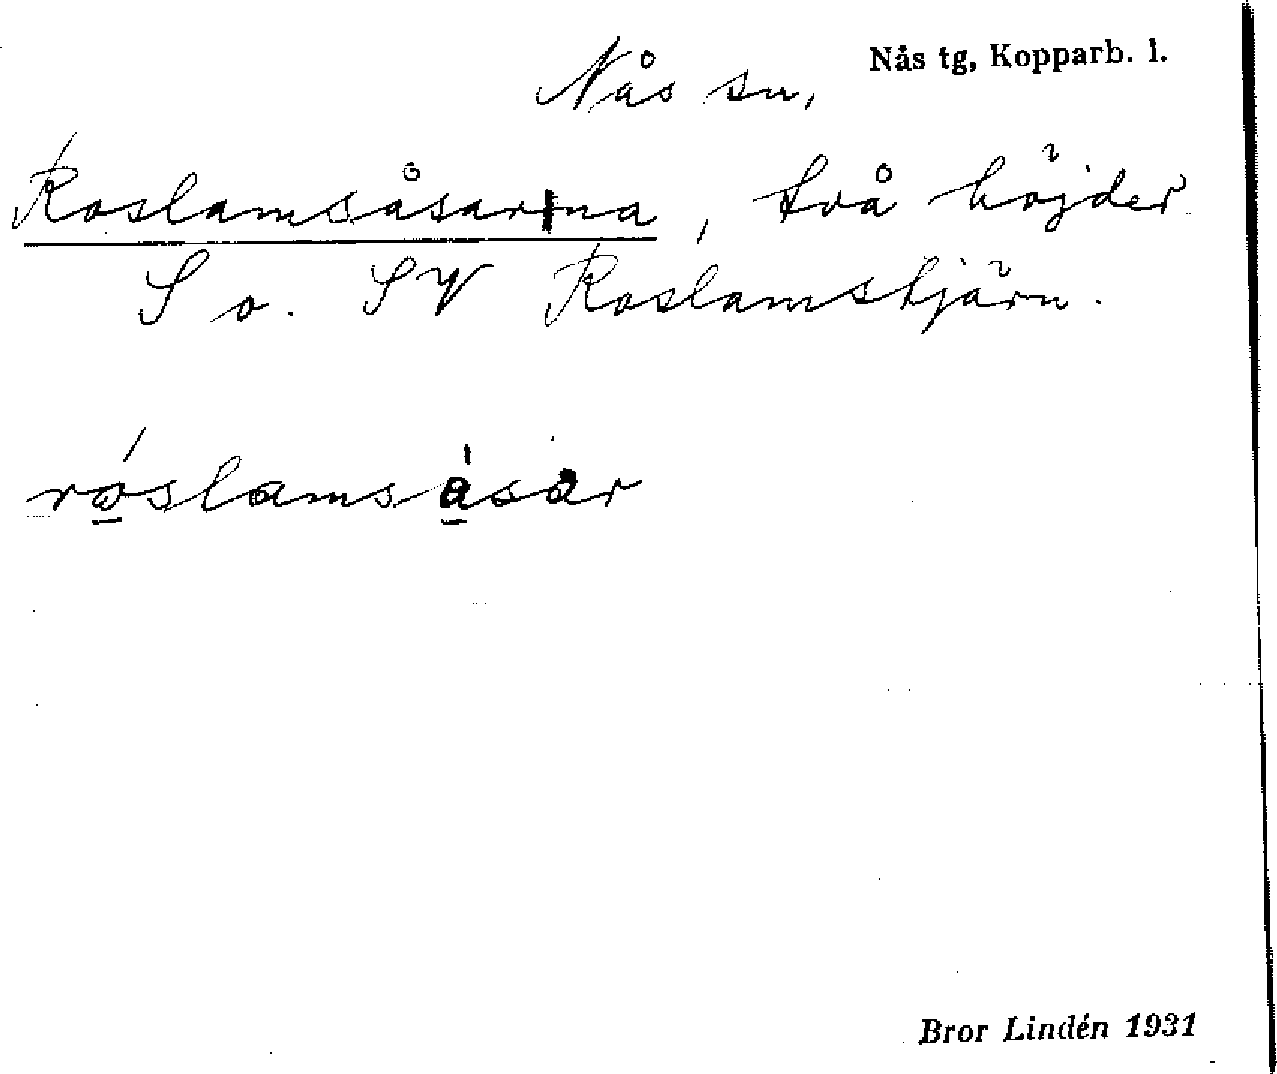 Nås tg, Kopparb. l.
Nås sn,
Roslamsåsarna, två höjder
S o. SV Roslamstjärn.
róslamsåsar
Bror Lindén 1931